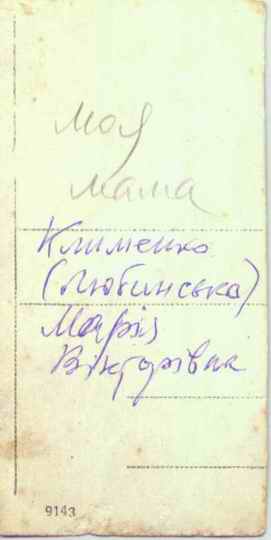 моя
мама
Клименко
(Любинська)
Марія
Вікторівна
9143